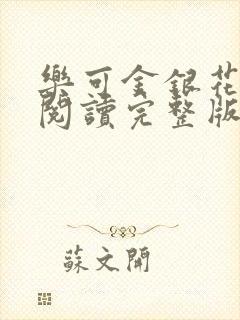 樂可金銀花
閱讀完整版
蘇文開